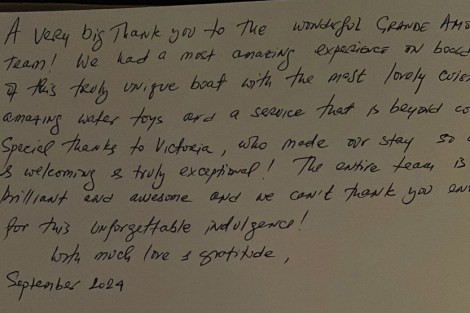 A very big Thank you to the wonderful Grande Am
team! We had a most amazing experience on boa
of this truly unique boat with the most lovely cuis
amazing water toys and a service that is beyond co
Special thanks to Victoria, who made our stay so
& welcoming & truly exceptional! The entire team is
brilliant and awesome and we can't thank you en
for this unforgettable indulgence!
With much love & gratitude,
September 2024